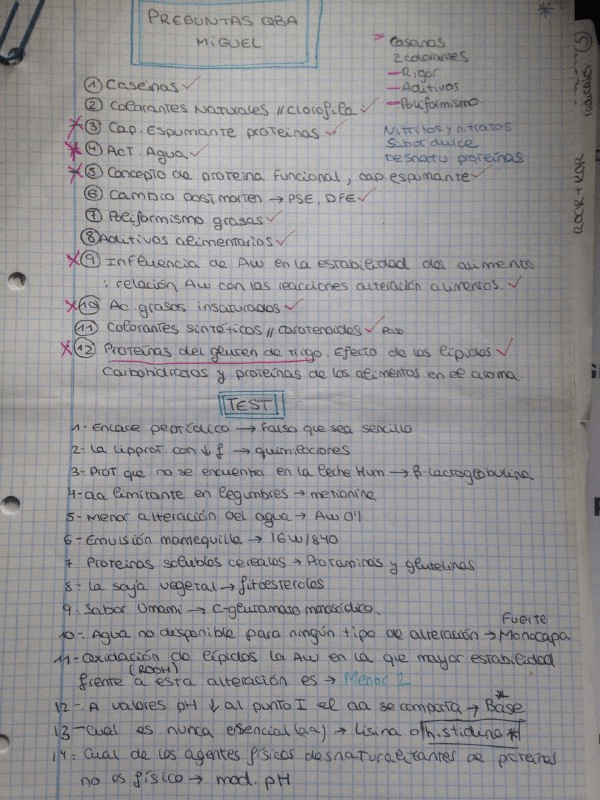 PREGUNTAS QBA
MIGUEL
*
> Caseinas
2 colorantes
- Rigor
- Aditivos
- Poliformismo
Nitritos y nitratos
Sabor dulce
Desnatu proteínas
ROOR + ROR
radicales
5
1 Caseínas ✓
2 Colorantes Naturales // Clorofila ✓
* 3 Cap. Espumante proteinas ✓
* 4 Act. Agua ✓
* 5 Concepto de proteína funcional, cap. espumante ✓
6 Cambio postmorten → PSE, DFE ✓
7 Poliformismo grasas ✓
8 Aditivos alimentarios ✓
* 9 Influencia de Aw en la estabilidad del alimento
: relación Aw con las reacciones alteración alimentos. ✓
* 10 Ac. grasos insaturados ✓
11 Colorantes sintéticos // carotenoides ✓
* 12 Proteínas del gluten de trigo. Efecto de los lípidos ✓
Carbohidratos y proteínas de los alimentos en el aroma.
TEST
1- Enlace peptídico → Falso que sea sencillo
2- La lipprot con ↓ f → quimilociones
3- Prot que no se encuentra en la leche Hum → β-lactoglobulina
4- aa limitante en legumbres → metionina
5- Menor alteración del agua → Aw 0'1
6- Emulsión mantequilla → 16W/84O
7- Proteínas solubles cereales → Prolaminas y glutelinas
8- La soja vegetal → fitoesteroles
9- Sabor Umami → C-glutamato monosódico.
10- Agua no desponible para ningún tipo de alteración → Monocapa
Fuerte
11- Oxidación de lípidos la Aw en la que mayor estabilidad
(ROOH)
frente a esta alteración es → Menor 2
12-. A valores pH ↓ al punto I el aa se comporta → Base *
13- Cual es nunca esencial (aa) → Lisina o histidina *
14- Cual de los agentes físicos desnaturalizantes de proteínas
no es físico → mod. pH